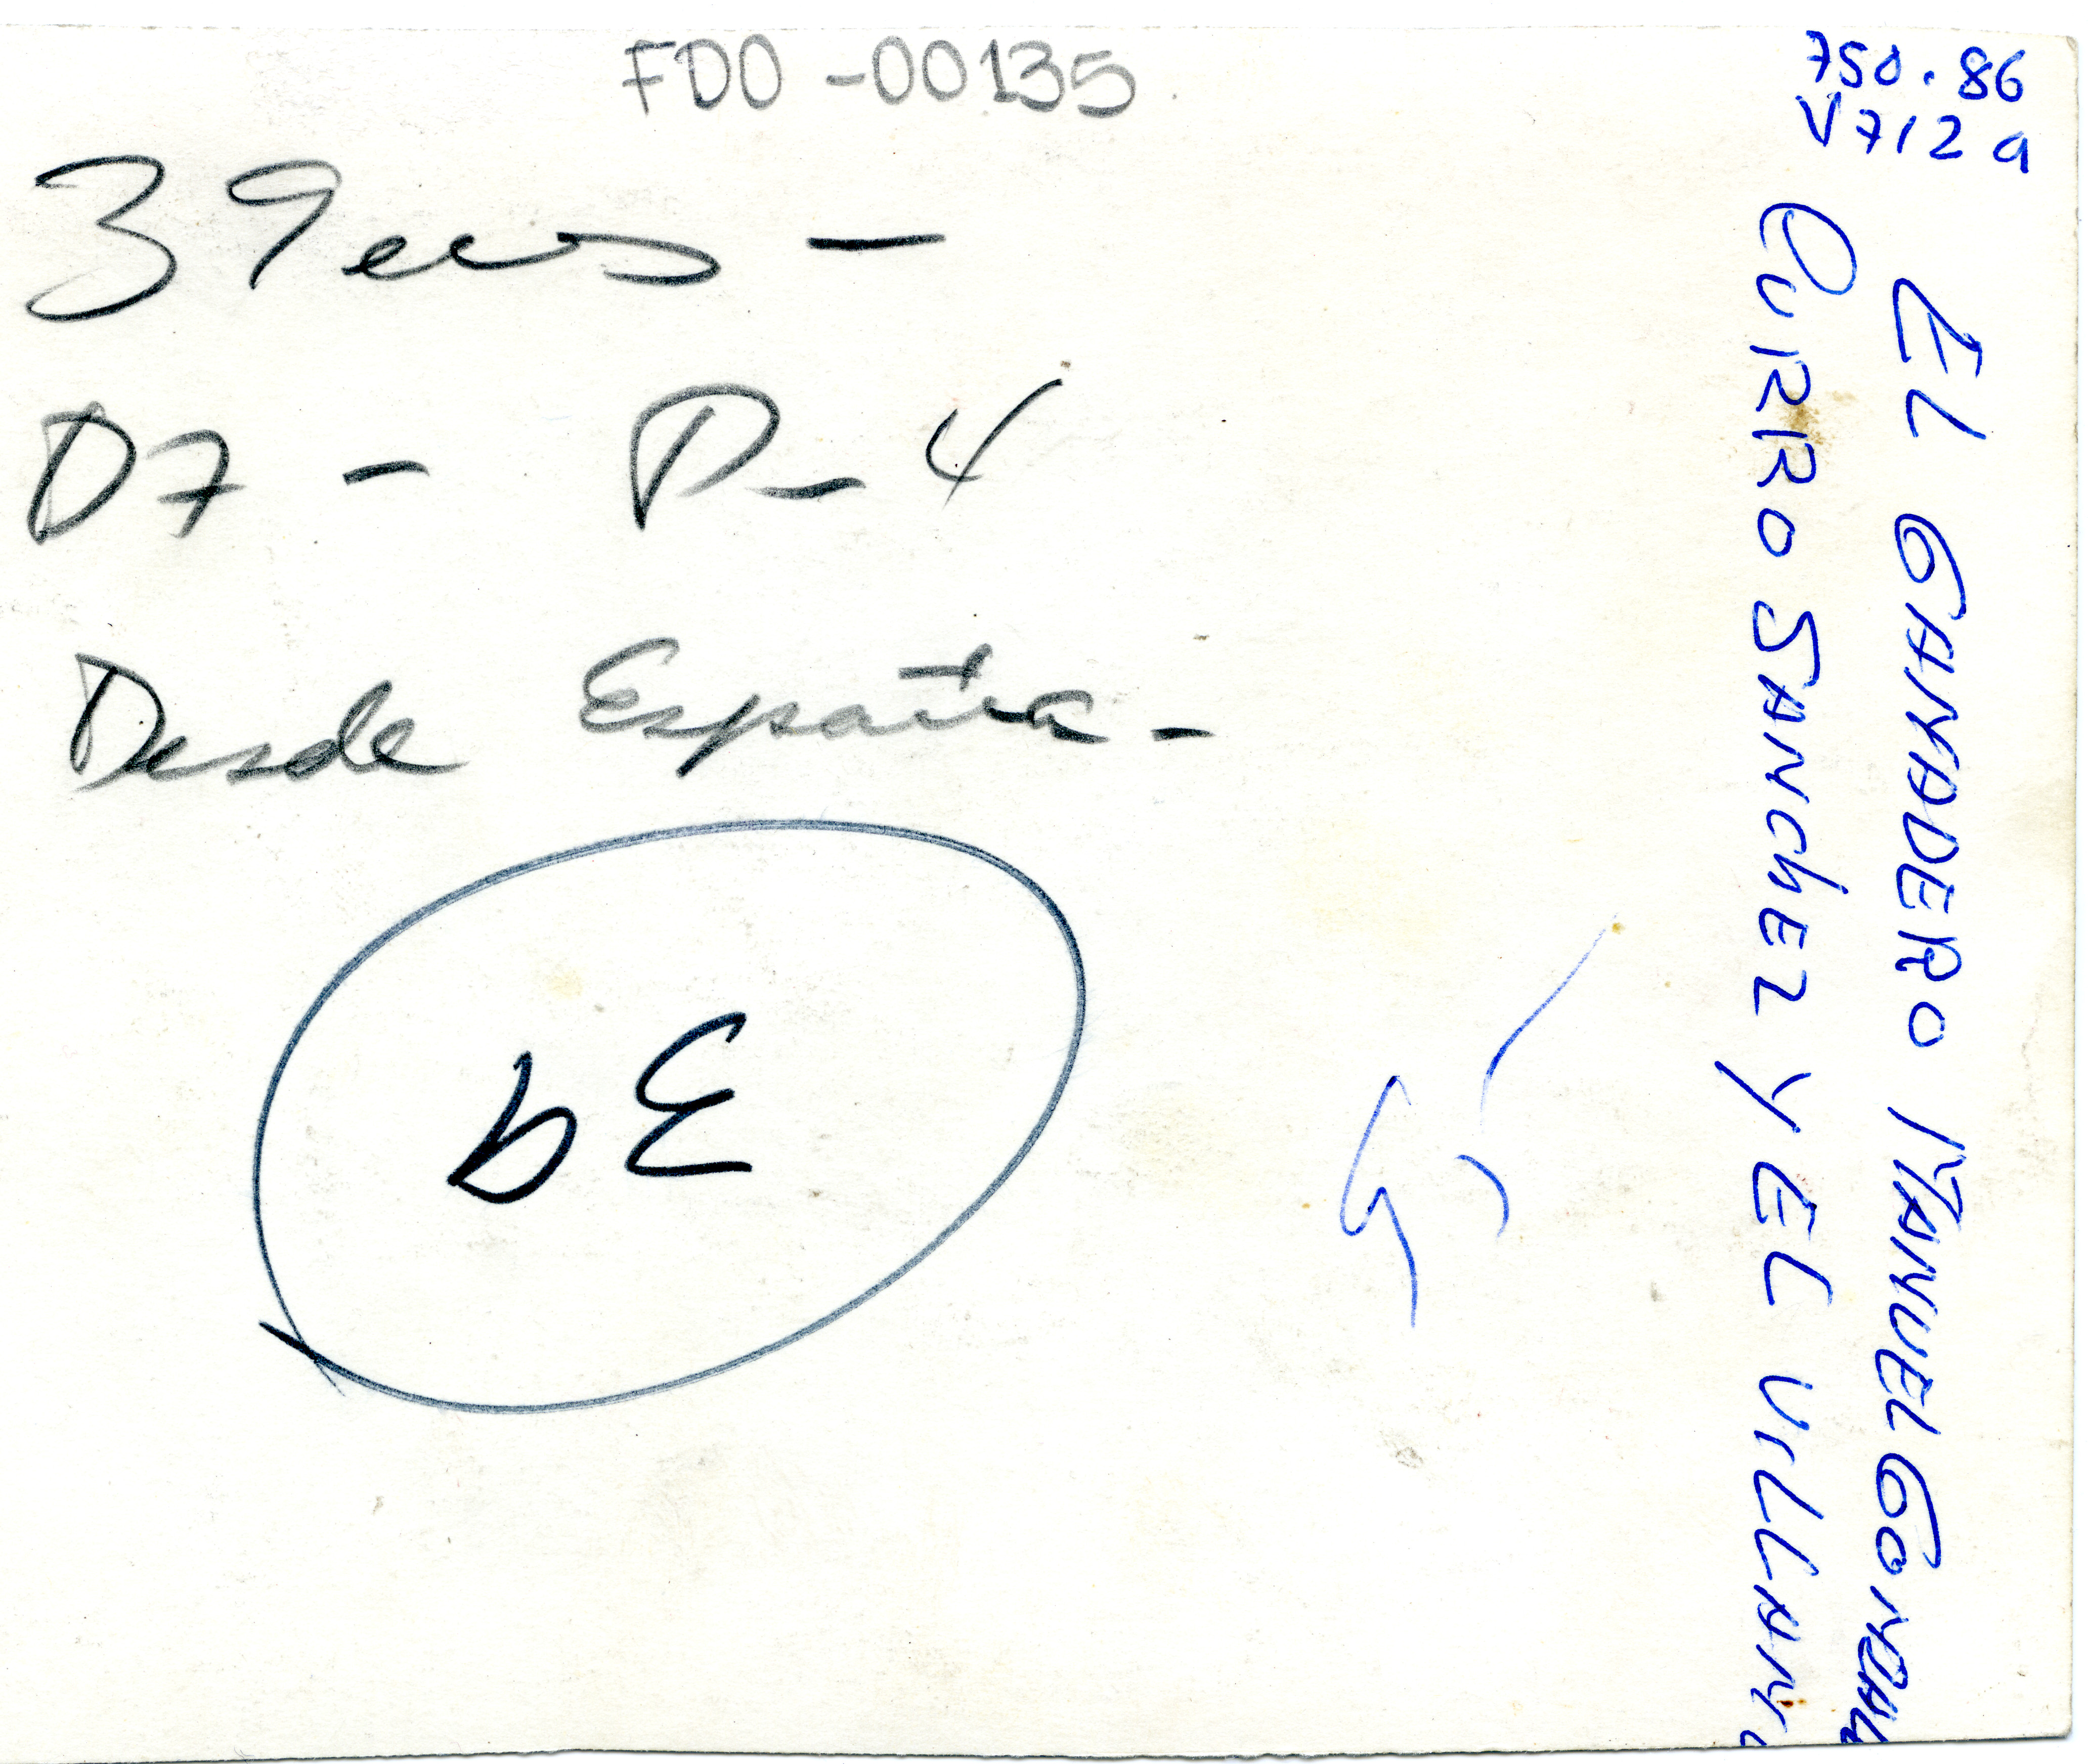 FDO -00135
750.86
V712a
39 ecos -
D7 - P-4
Desde España -
39
EL GANADERO MANUEL GONZAL
CURRO SANCHEZ Y EL VILLAN